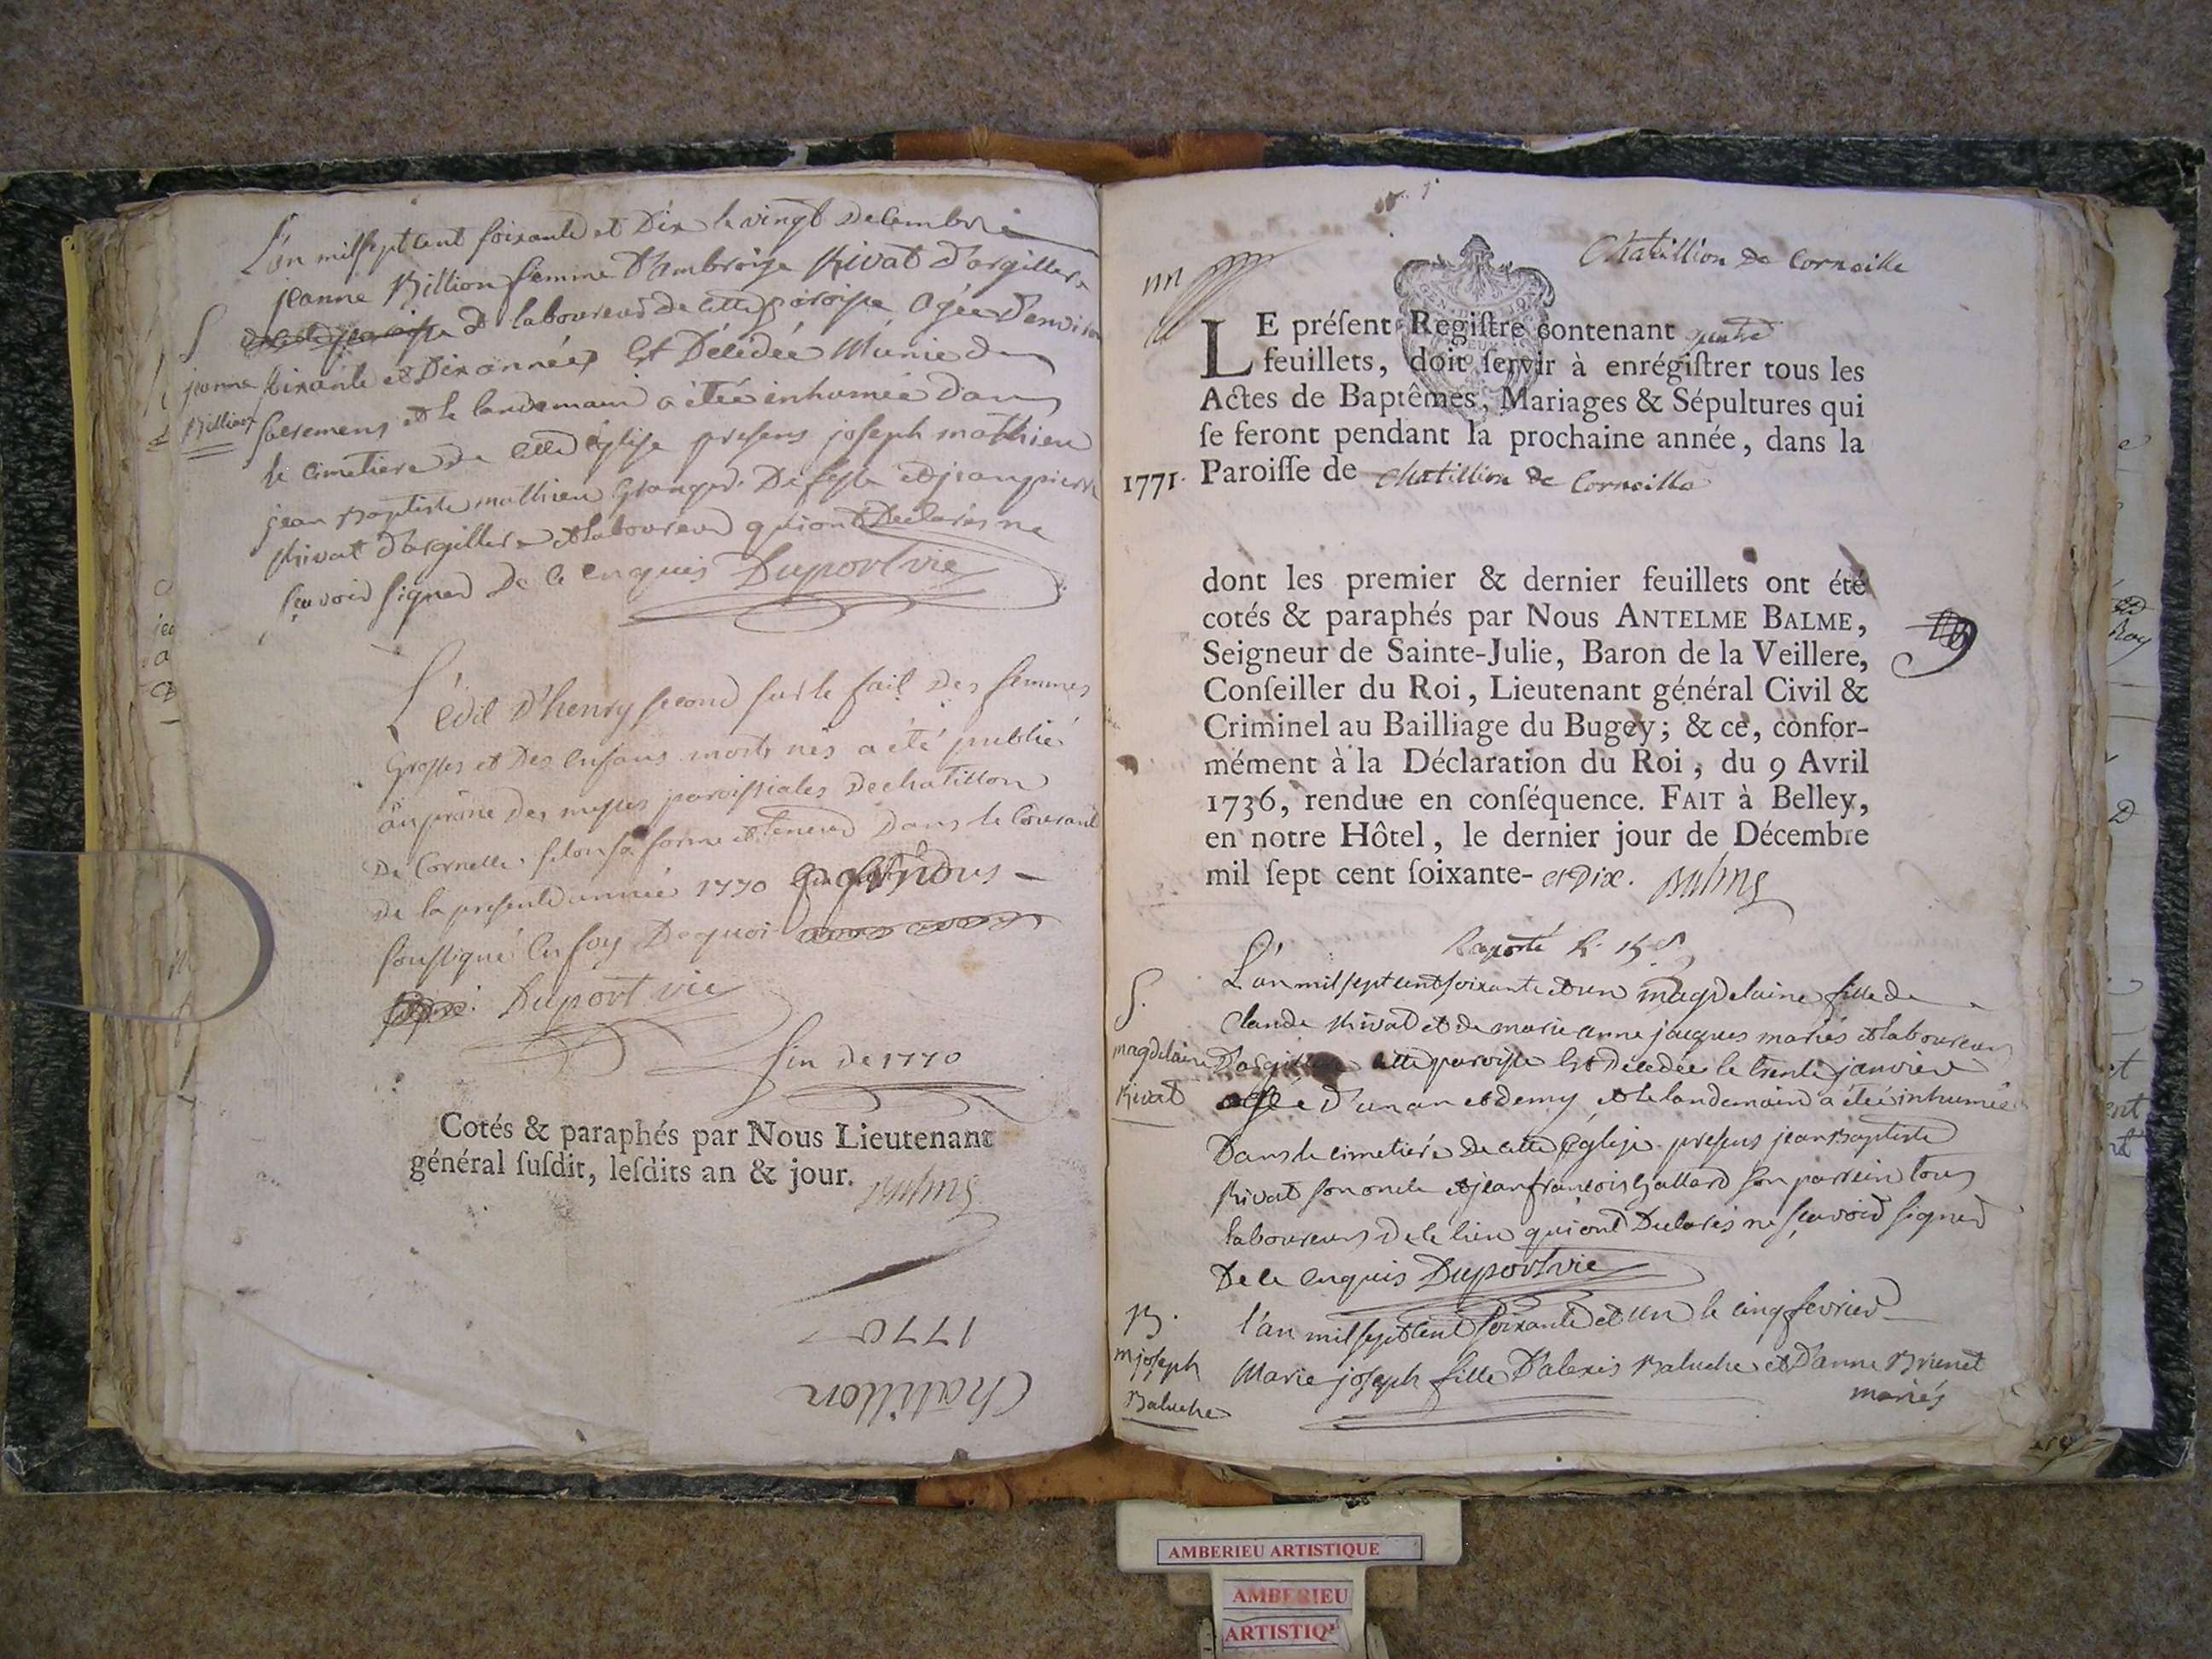 L'an mil sept cent soixante et Dix le vingt Decembre
jeanne Billion femme d'ambroise Rivat d'argillere
et laboureur de cette paroisse agée d'environ
S
jeanne
Billion
soixante et Dix années Est Décédée Munie des
sacremens et le landemain a étée inhumée dans
le cimetiere de cette église presens joseph mathieu
jean Baptiste mathieu Granger et jean pierre
Rivat d'argillere et laboureur qui ont Declarés ne
sçavoir signer De ce enquis Duport vic
L'edit d'henry second sur le fait des femmes
Grosses et Des enfans morts nés a été publié
au prône Des messes paroissiales De chatillon
De Cornelle selon sa forme et teneur Dans le Courant
de la presente année 1770 nous
soussigné En foy De quoi
Duport vic
fin de 1770
Cotés & paraphés par Nous Lieutenant
général ſuſdit, leſdits an & jour.
Balme
1770
Chatillon
Chatillion de Corneille
LE préſent Regiſtre contenant quatre
feuillets, doit ſervir à enrégiſtrer tous les
Actes de Baptêmes, Mariages & Sépultures qui
ſe feront pendant la prochaine année, dans la
1771. Paroiſſe de Chatillion de Corneille
dont les premier & dernier feuillets ont été
cotés & paraphés par Nous ANTELME BALME,
Seigneur de Sainte-Julie, Baron de la Veillere,
Conſeiller du Roi, Lieutenant général Civil &
Criminel au Bailliage du Bugey; & ce, confor-
mément à la Déclaration du Roi, du 9 Avril
1736, rendue en conſéquence. FAIT à Belley,
en notre Hôtel, le dernier jour de Décembre
mil ſept cent ſoixante- et Dix. Balme
L'an mil sept cent soixante et un magdelaine fille de
Claude Rivat et de marie anne jacques mariés et laboureurs
S.
magdelaine
Rivat
cette paroisse Est Decedée le trente janvier
D'un an et demy et le landemain a étée inhumée
Dans le cimetiére De cette Eglise presens jean Baptiste
Rivat son oncle et jean francois Gallard son parrein tous
laboureurs De ce lieu qui ont Declarés ne sçavoir signer
De ce enquis Duport vic
B.
m joseph
Baluche
l'an mil sept cent soixante et un le cinq fevrier
Marie joseph fille D'alexis Baluche et D'anne Brunet
mariés
AMBERIEU ARTISTIQUE
AMBERIEU
ARTISTIQ